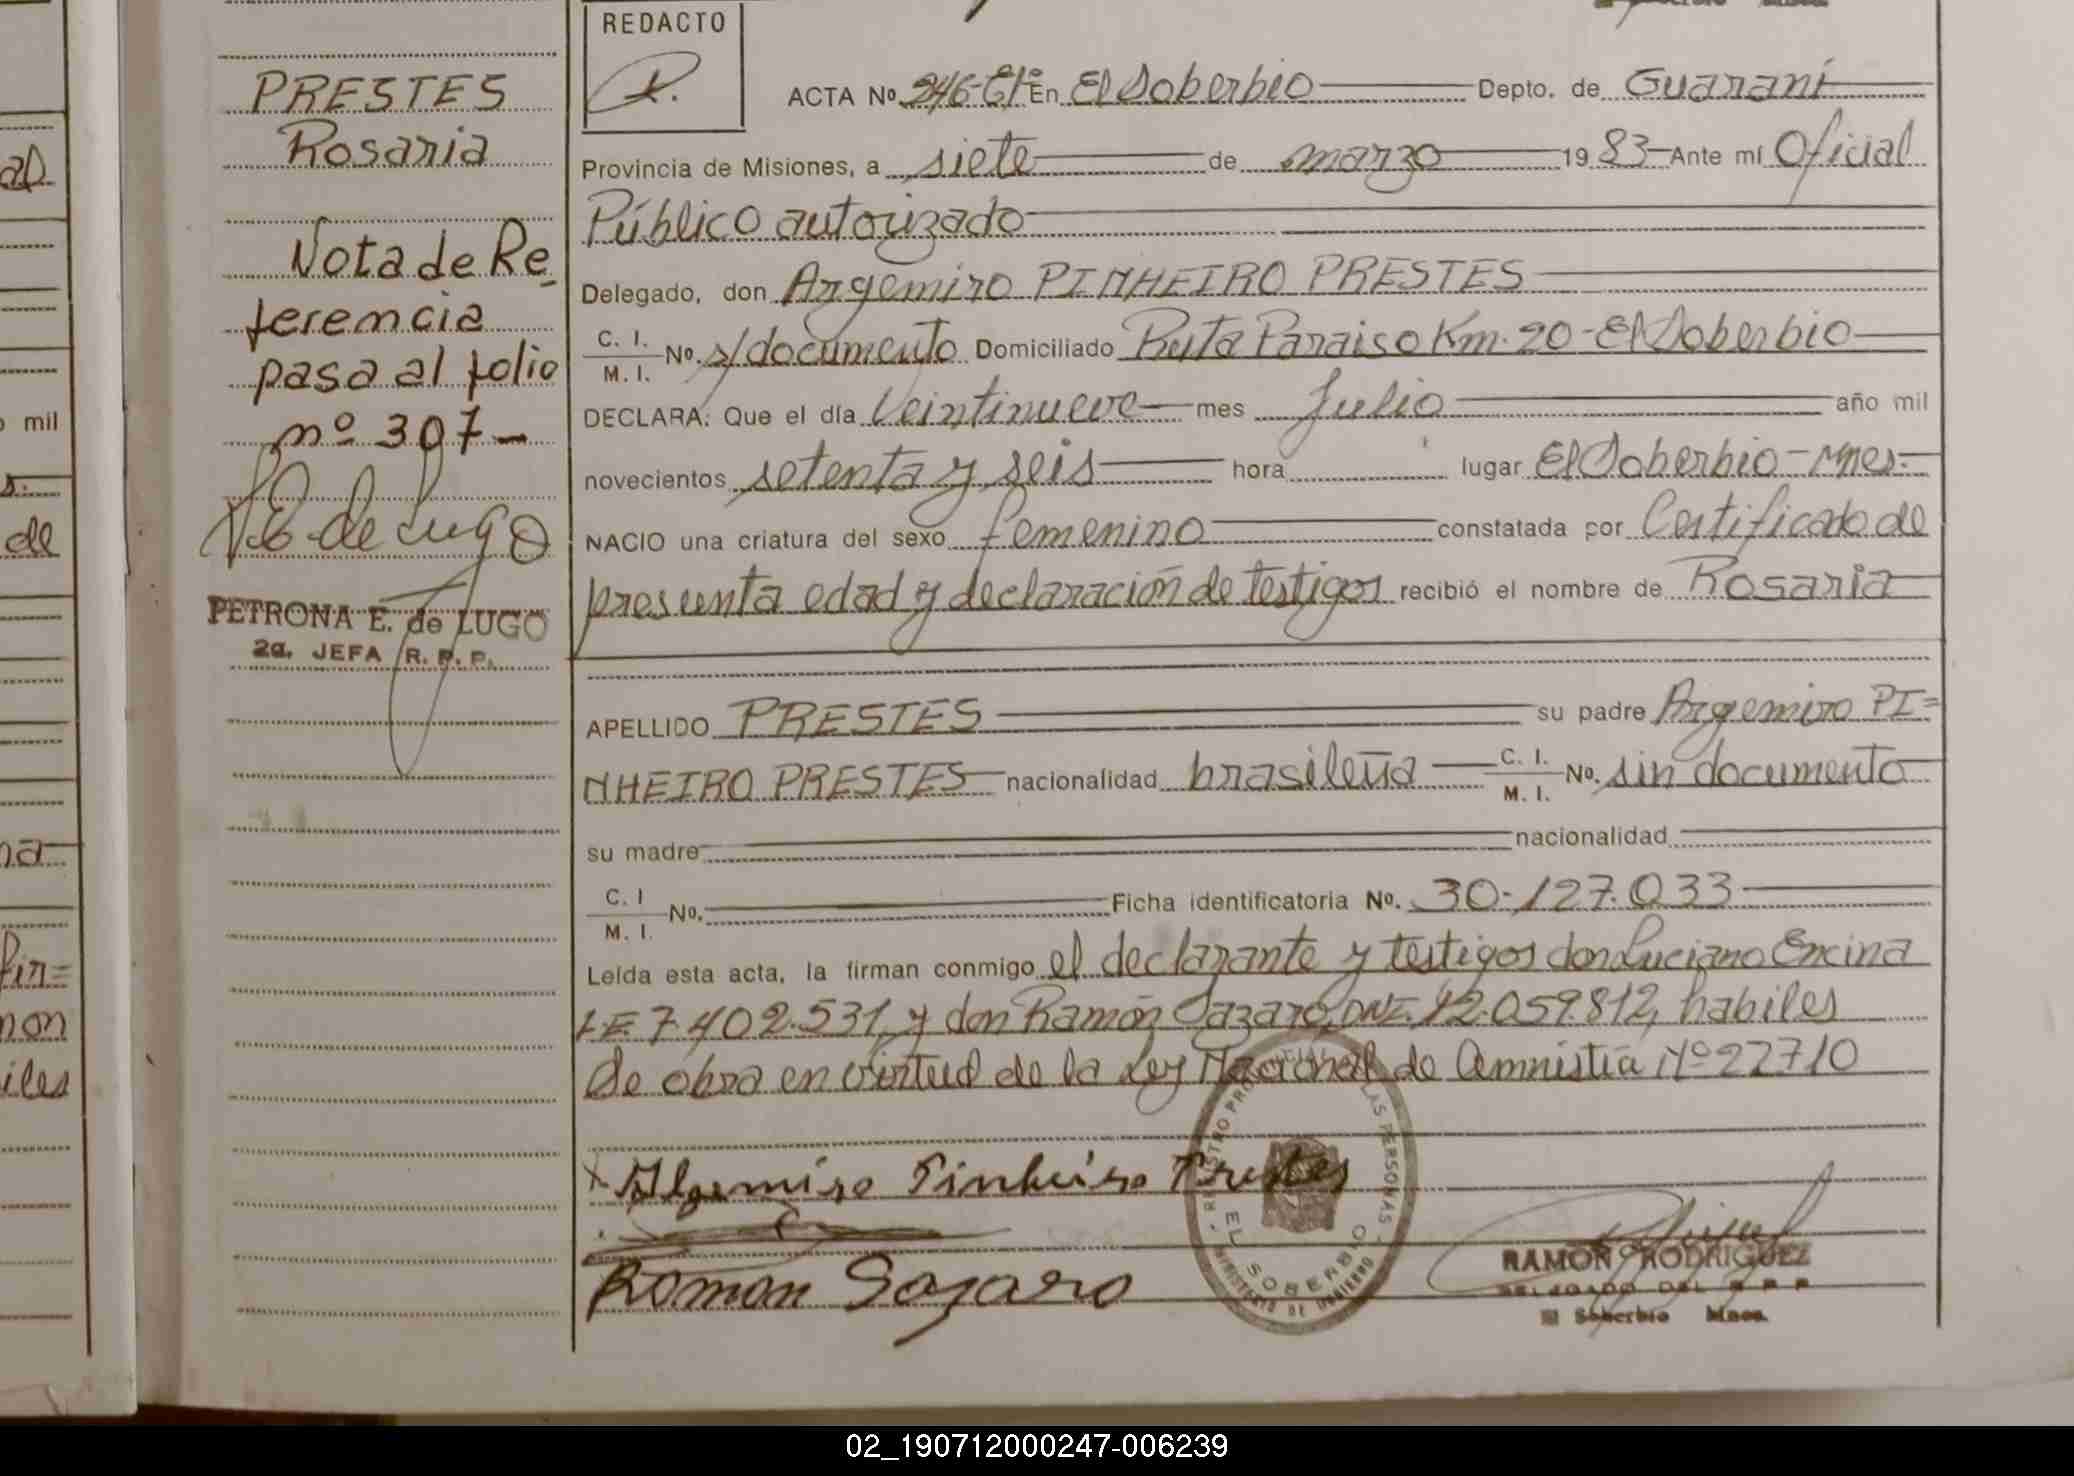 REDACTO
PRESTES
Rosaria
Nota de Re
ferencia
pasa al folio
nº 307-
PETRONA E. de LUGO
2a. JEFA R. P. P.
ACTA Nº 246-Eº En El Soberbio Depto. de Guaraní
Provincia de Misiones, a siete de marzo 19 83 Ante mí Oficial
Público autorizado
Delegado, don Argemiro PINHEIRO PRESTES
C. I.
M. I. Nº. s/documento Domiciliado Ruta Paraiso Km. 20 - El Soberbio
DECLARA: Que el día Veintinueve mes Julio año mil
novecientos setenta y seis hora lugar El Soberbio - Mnes.
NACIO una criatura del sexo femenino constatada por Certificado de
presunta edad y declaración de testigos recibió el nombre de Rosaria
APELLIDO PRESTES su padre Argemiro PI=
NHEIRO PRESTES nacionalidad brasileña C. I. M. I. Nº. sin documento
su madre nacionalidad
C. I M. I. Nº. Ficha identificatoria Nº. 30-127.033
Leída esta acta, la firman conmigo el declarante y testigos don Luciano Encina
L.E. 7.402.531, y don Ramón Sazaro, DNI. 12.059.812, habiles
de obra en virtud de la Ley Nacional de Amnistía Nº 22710
Algemiro Pinheiro Prestes
Roman Sazaro
EL SOBERBIO
MINISTERIO DE GOBIERNO
RAMON RODRIGUEZ
DELEGADO DEL R P P
El Soberbio Mnes.
mil
de
na
non
iles
02_190712000247-006239